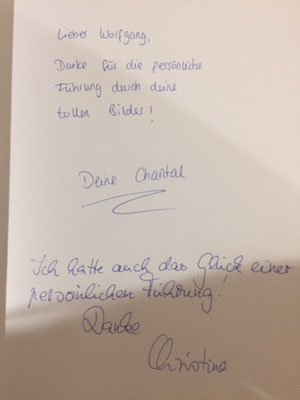 Lieber Wolfgang,
Danke für die persönliche
Führung durch deine
tollen Bilder!
Deine Chantal
Ich hatte auch das Glück einer
persönlichen Führung!
Danke
Christine